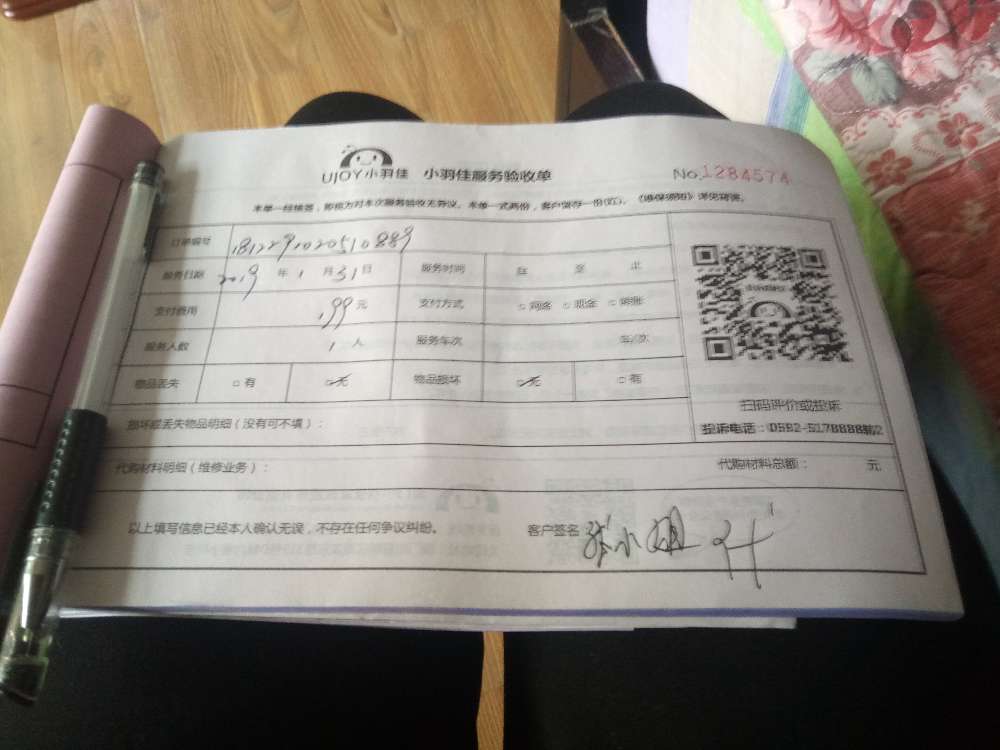 UJOY小羽佳 小羽佳服务验收单 No.1284574
本单一经签署,即视为对本次服务验收无异议。本单一式两份,客户留存一份(红)。《维保须知》详见背面。
订单编号 1812291020510889
服务日期 2019 年 1 月 31 日 服务时间 自 至 止
支付费用 199 元 支付方式 □网络 □现金 □转账
服务人数 1 人 服务车次 车/次
物品丢失 □有 □无 物品损坏 □无 □有
扫码评价或投诉
损坏或丢失物品明细(没有可不填): 投诉电话:0592-5178888转2
代购材料明细(维修业务): 代购材料总额: 元
以上填写信息已经本人确认无误,不存在任何争议纠纷。 客户签名 小姐